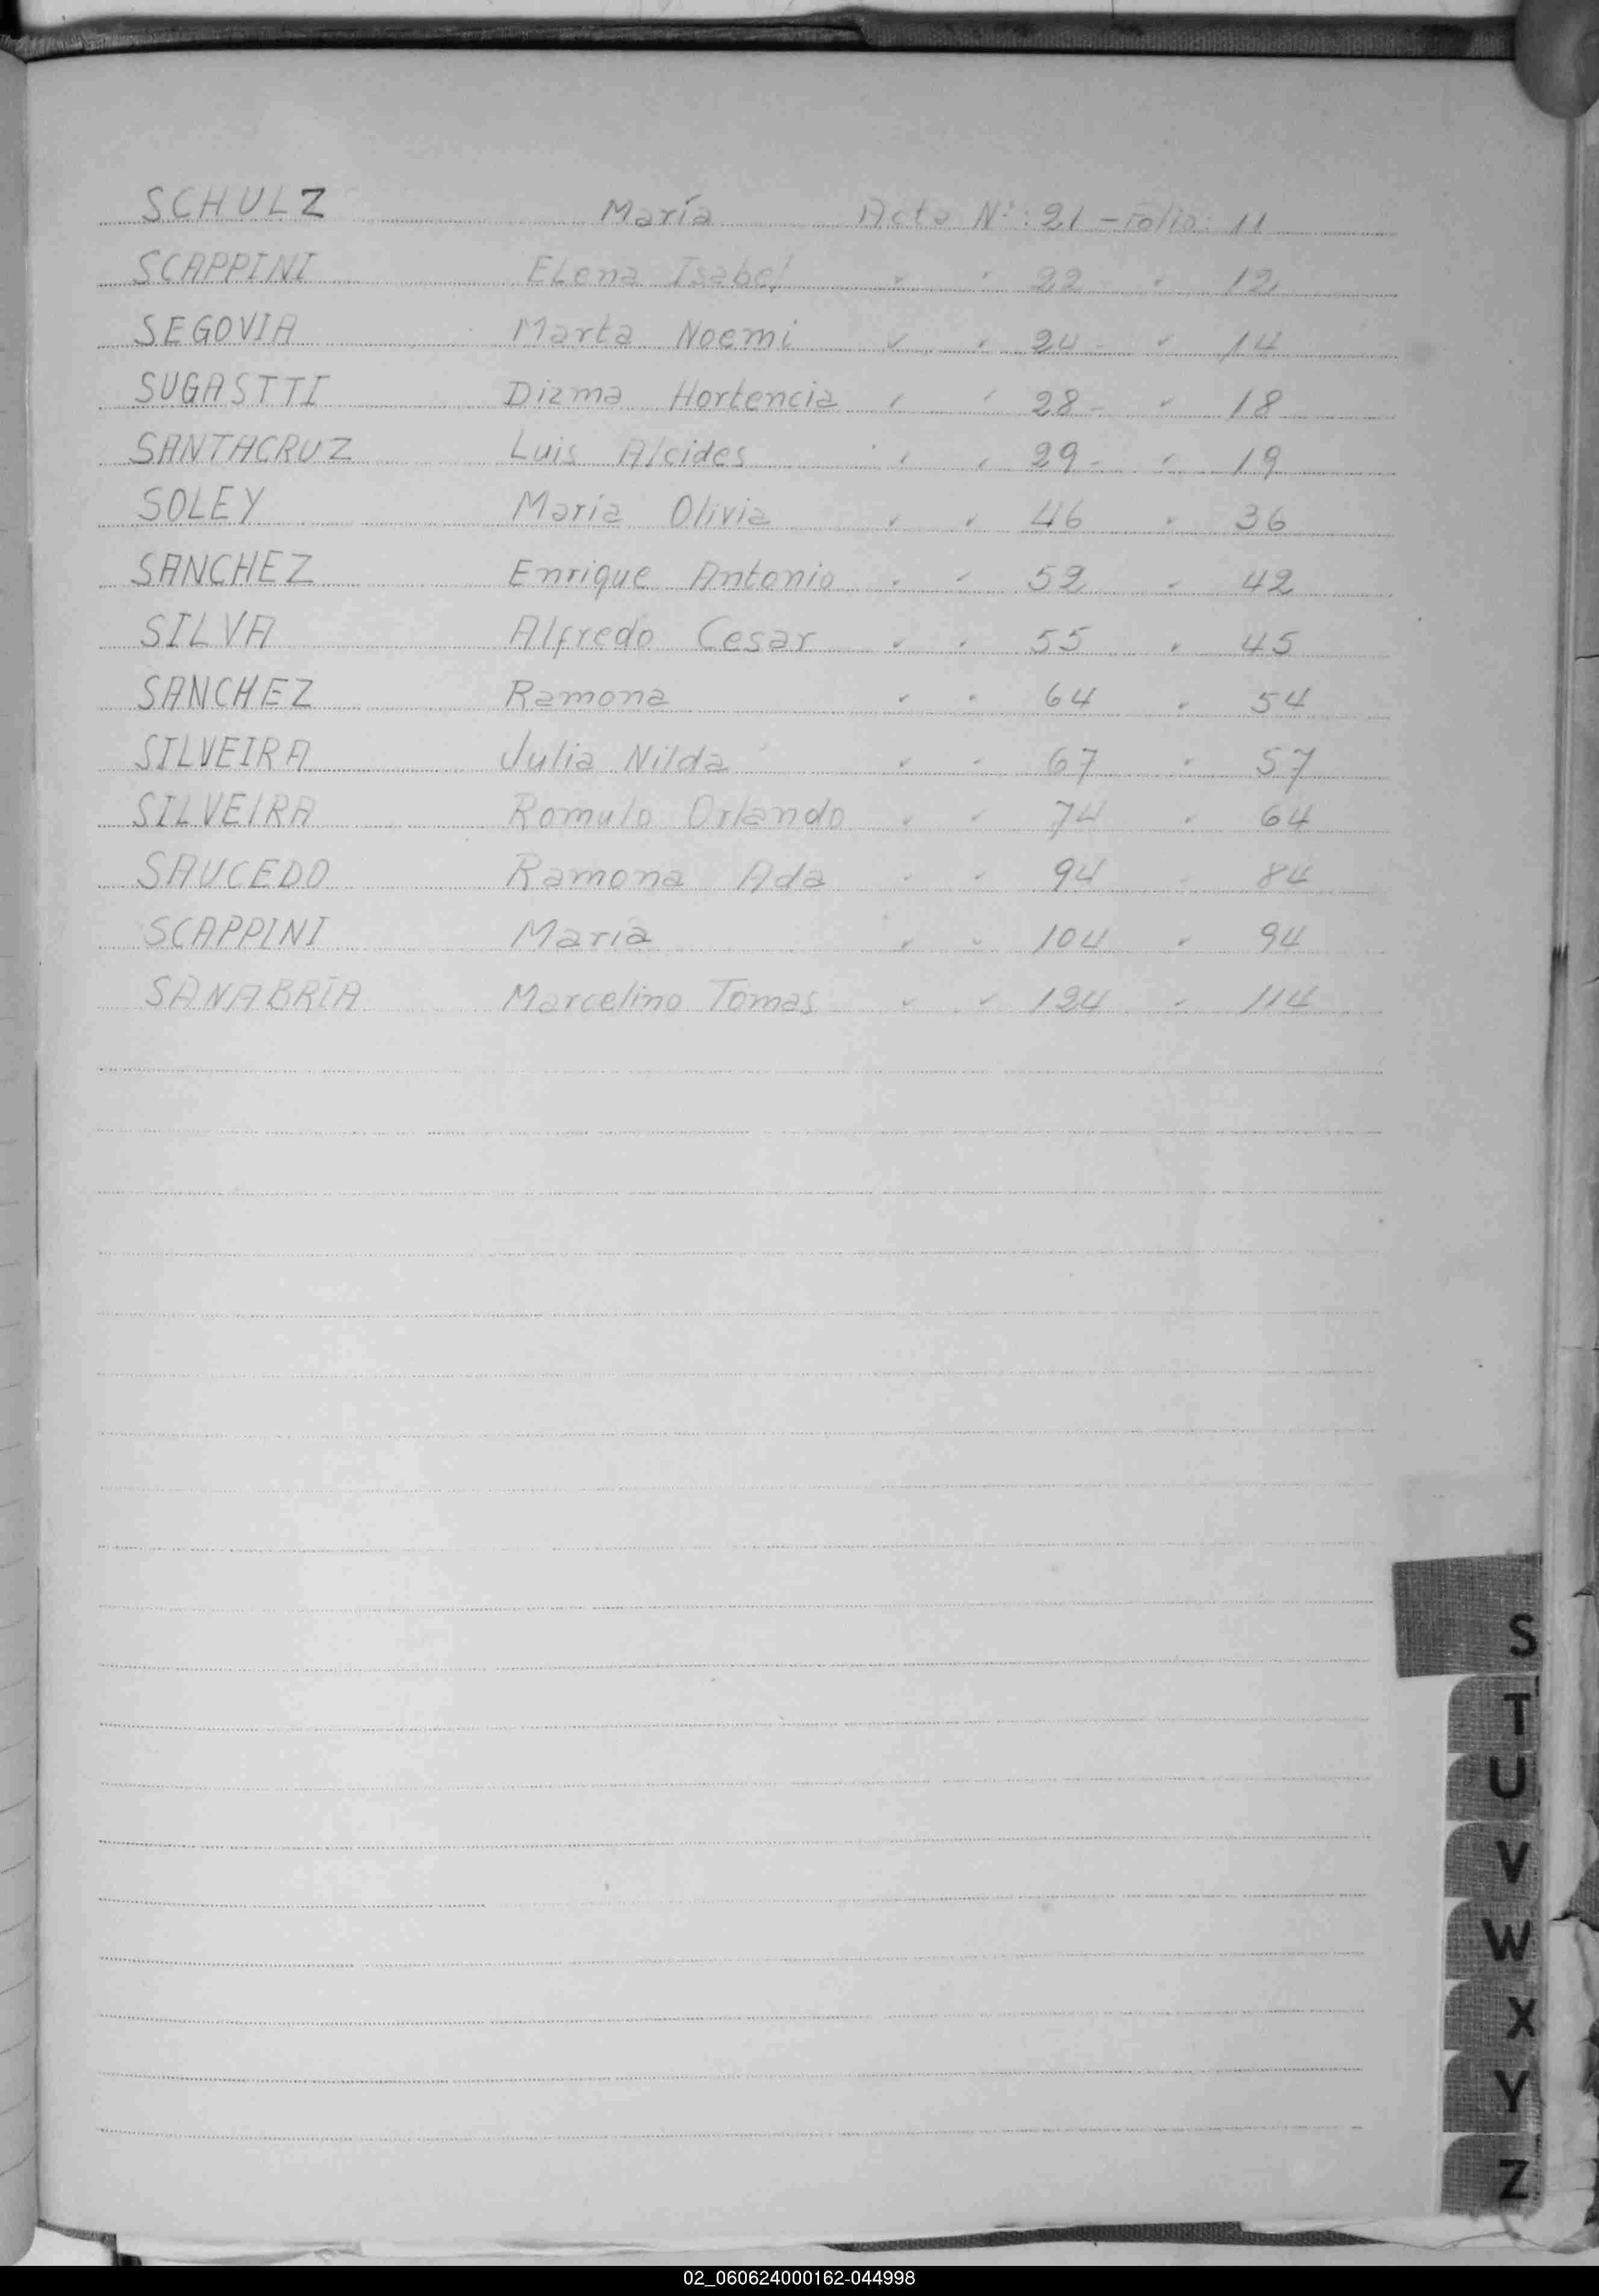 SCHULZ María Acta Nº: 21 - Folio: 11
SCAPPINI ELena Isabel " " 22 - " 12
SEGOVIA Marta Noemi " " 24 - " 14
SUGASTTI Dizma Hortencia " " 28 - " 18
SANTACRUZ Luis Alcides " " 29 - " 19
SOLEY Maria Olivia " " 46 " 36
SANCHEZ Enrique Antonio " " 52 " 42
SILVA Alfredo Cesar " " 55 " 45
SANCHEZ Ramona " " 64 " 54
SILVEIRA Julia Nilda " " 67 " 57
SILVEIRA Romulo Orlando " " 74 " 64
SAUCEDO Ramona Ada " " 94 " 84
SCAPPINI María " " 104 " 94
SANABRIA Marcelino Tomas " " 124 " 114
S
T
U
V
W
X
Y
Z
02_060624000162-044998